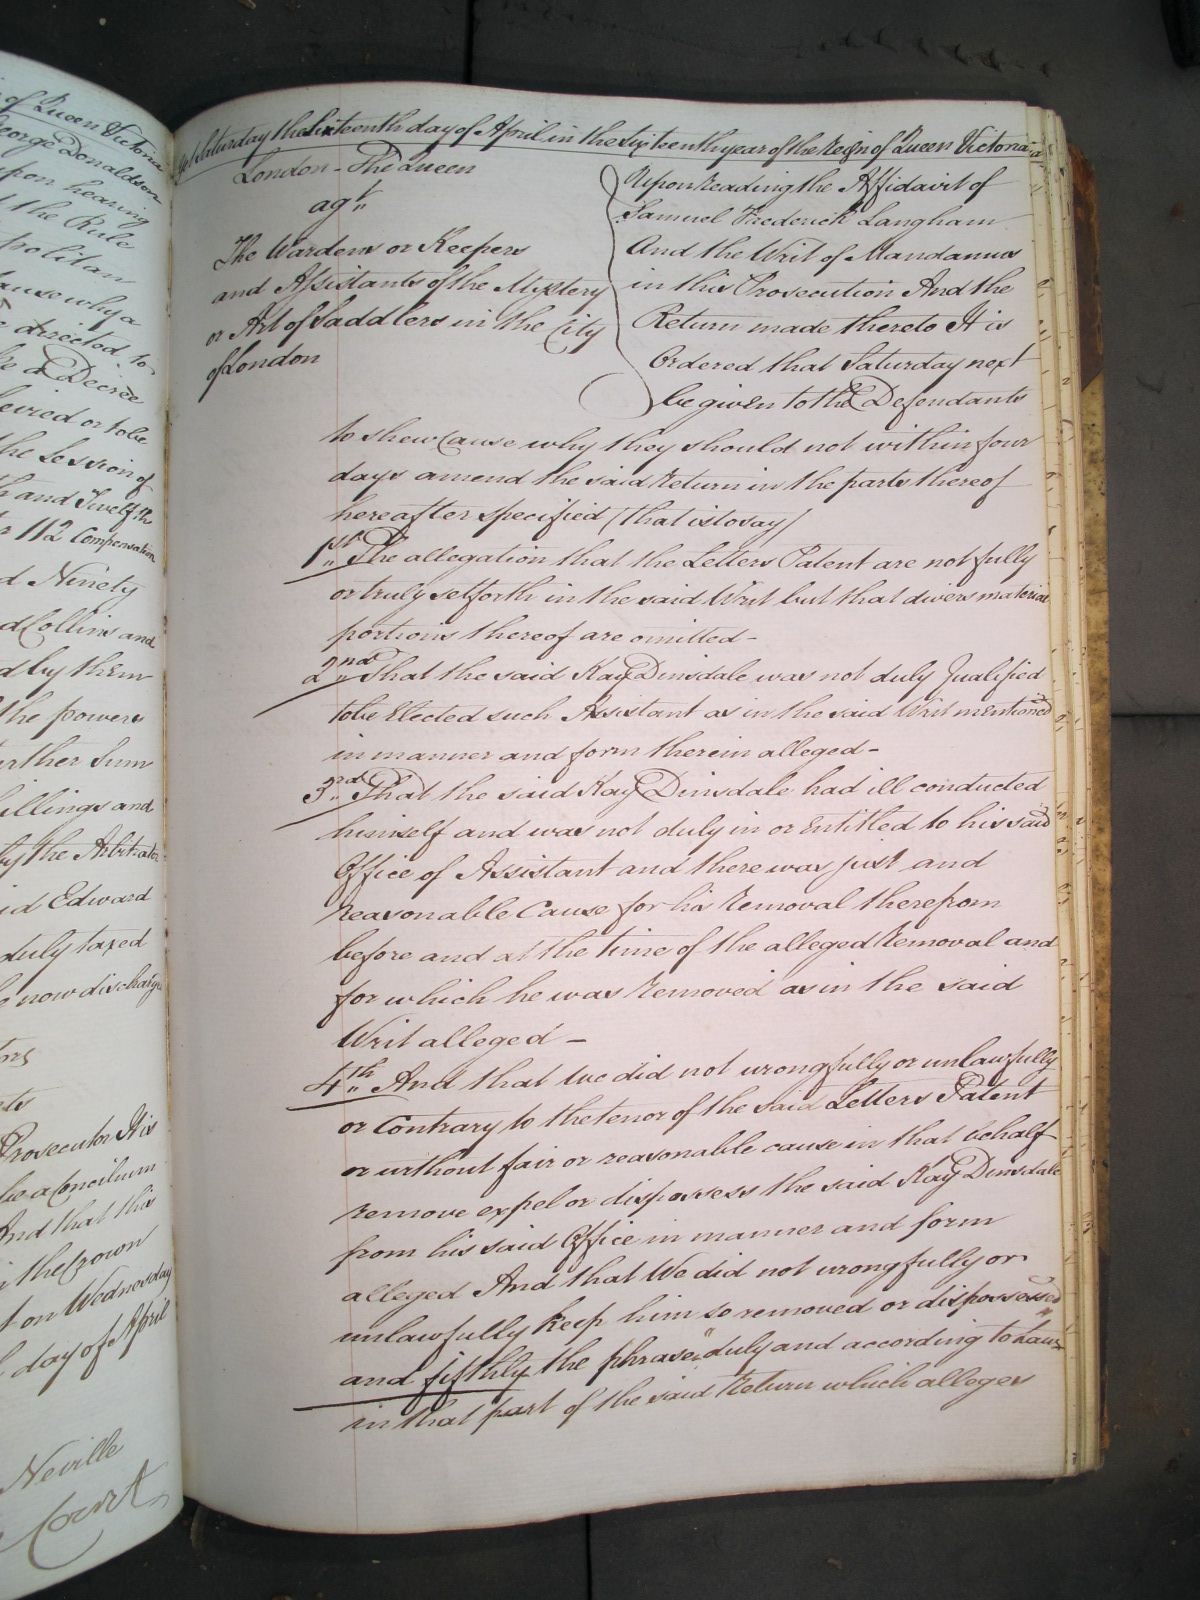 of Queen Victoria
George Donaldson
upon hearing
the Rule
cause why a
directed to
Decree
the Session of
and Twelfth
112 Compensation
Ninety
Collins and
by them
the powers
further Sum
Shillings and
by the Arbitrator
Edward
duly taxed
now discharge
Prosecutor It is
be a Concilium
And that this
the Crown
on Wednesday
day of April
Neville
Court
Saturday the Sixteenth day of April in the Sixteenth year of the Reign of Queen Victoria
London - The Queen
agt
The Wardens or Keepers
and Assistants of the Mystery
or Art of Saddlers in the City
of London
Upon Reading the Affidavit of
Samuel Frederick Langham
And the Writ of Mandamus
in this Prosecution And the
Return made thereto It is
Ordered that Saturday next
be given to the Defendants
to shew Cause why they should not within four
days amend the said Return in the parts thereof
hereafter specified (that is to say)
1st The allegation that the Letters Patent are not fully
or truly setforth in the said Writ but that divers material
portions thereof are omitted -
2nd That the said Kay Dinsdale was not duly qualified
to be Elected such Assistant as in the said Writ mentioned
in manner and form therein alleged -
3rd That the said Kay Dinsdale had ill conducted
himself and was not duly in or Entitled to his said
Office of Assistant and there was just and
reasonable Cause for his Removal therefrom
before and at the time of the alleged Removal and
for which he was Removed as in the said
Writ alleged -
4th And that we did not wrongfully or unlawfully
or Contrary to the tenor of the said Letters Patent
or without fair or reasonable cause in that behalf
remove expel or dispossess the said Kay Dinsdale
from his said Office in manner and form
alleged And that We did not wrongfully or
unlawfully keep him so removed or dispossessed
and fifthly the phrase "duly and according to Law"
in that part of the said Return which alleges